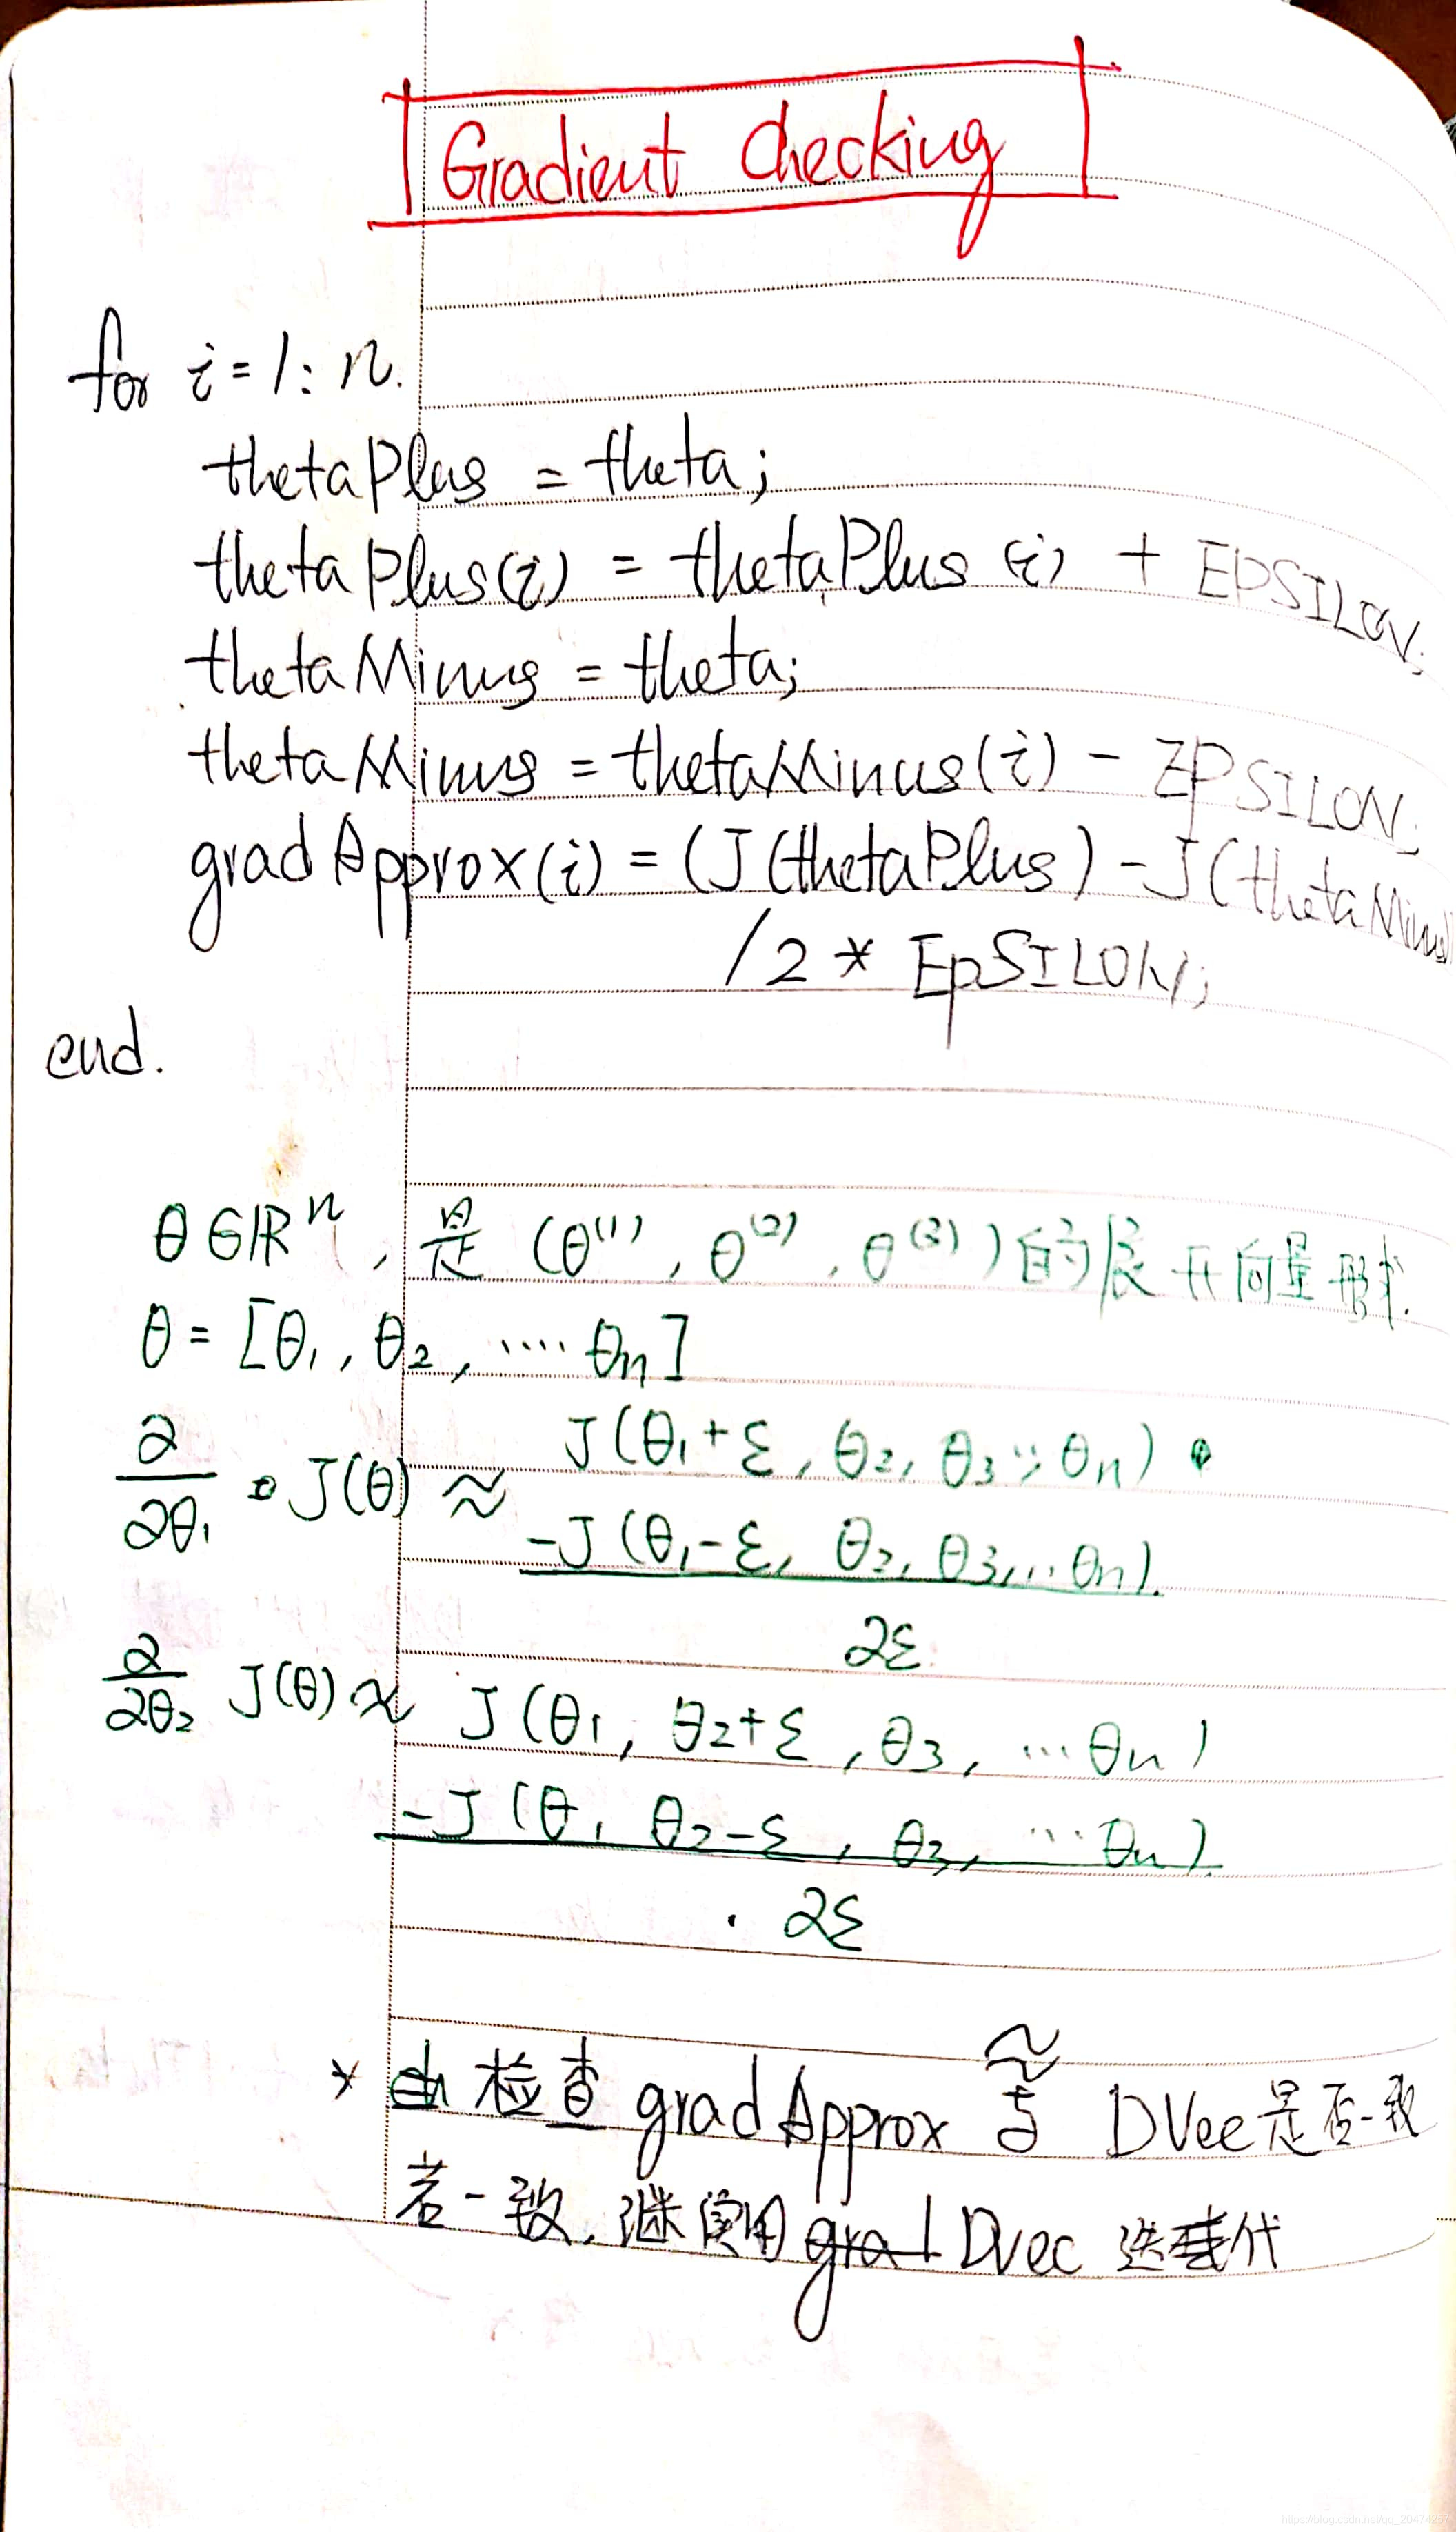 Gradient Checking
for i=1:n.
thetaPlus = theta;
thetaPlus(i) = thetaPlus(i) + EPSILON;
thetaMinus = theta;
thetaMinus = thetaMinus(i) - EPSILON;
gradApprox(i) = (J(thetaPlus) - J(thetaMinus)
/2 * EpSILON;
end.
θ∈ℝⁿ, 是 (θ⁽¹⁾, θ⁽²⁾, θ⁽³⁾) 的展开向量形式.
θ = [θ₁, θ₂, ····· θₙ]
∂/∂θ₁ J(θ) ≈ J(θ₁+ε, θ₂, θ₃ ... θₙ)
-J(θ₁-ε, θ₂, θ₃, ... θₙ).
2ε
∂/∂θ₂ J(θ) ≈ J(θ₁, θ₂+ε, θ₃, ... θₙ)
-J(θ₁ θ₂-ε, θ₃, ... θₙ).
2ε
* 检查 gradApprox ≈ 与 DVec 是否一致
若一致, 继续用 DVec 迭代
https://blog.csdn.net/qq_20474257